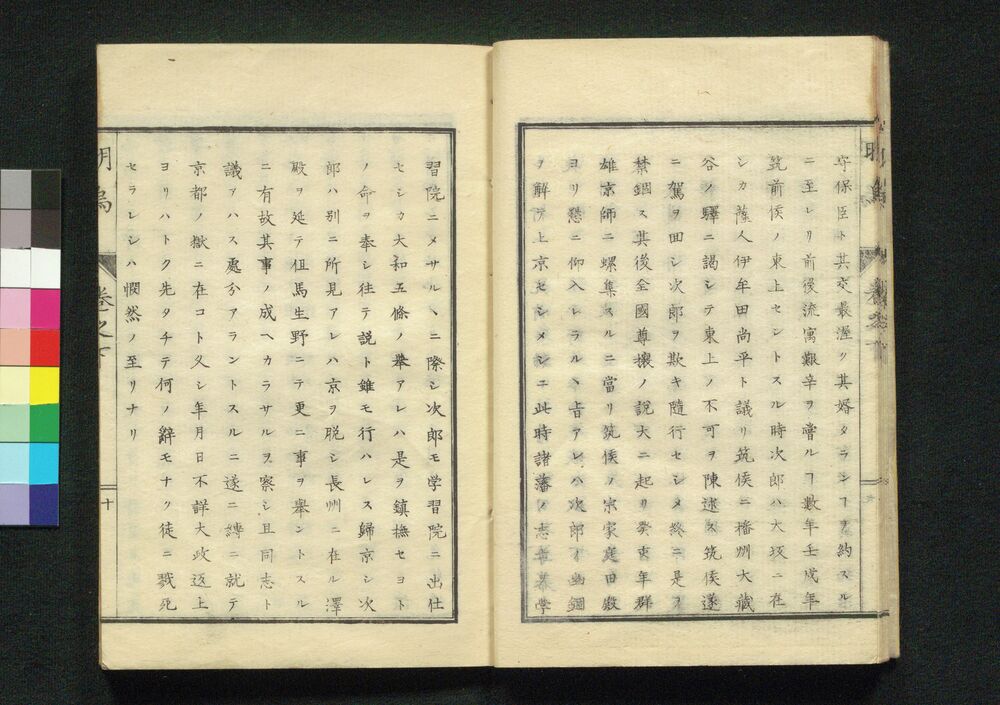 守保臣ト其交最渥ク其婿タランヿヲ約スル
ニ至レリ前後流寓艱辛ヲ嘗ルヿ數年壬戌年
筑前侯ノ東上セントスル時次郎ハ大坂ニ在
シカ薩人伊牟田尚平ト議リ筑侯ニ播州大藏
谷ノ驛ニ謁シテ東上ノ不可ヲ陳述ス筑侯遂
ニ駕ヲ回シ次郎ヲ欺キ隨行セシメ終ニ是ヲ
禁錮ス其後全國尊攘ノ説大ニ起リ癸亥年群
雄京師ニ螺集スルニ當リ筑侯ノ宗家黒田殿
ヨリ懇ニ仰入レラルヽ旨アレハ次郎ノ幽錮
ヲ解テ上京セシメシニ此時諸藩ノ志士幕學
習院ニメサルヽニ際シ次郎モ学習院ニ出仕
セシカ大和五條ノ擧アレハ是ヲ鎮撫セヨト
ノ命ヲ奉シ往テ説ト雖モ行ハレス歸京シ次
郎ハ別ニ所見アレハ京ヲ脱シ長州ニ在ル澤
殿ヲ延テ但馬生野ニテ更ニ事ヲ擧ントスル
ニ有故其事ノ成ヘカラサルヲ察シ且同志ト
議アハス處分アラントスルニ遂ニ縳ニ就テ
京都ノ獄ニ在コト久シ年月日不詳大政返上
ヨリハトク先タチテ何ノ辭モナク徒ニ戮死
セラレシハ憫然ノ至リナリ
明烏
卷之
十